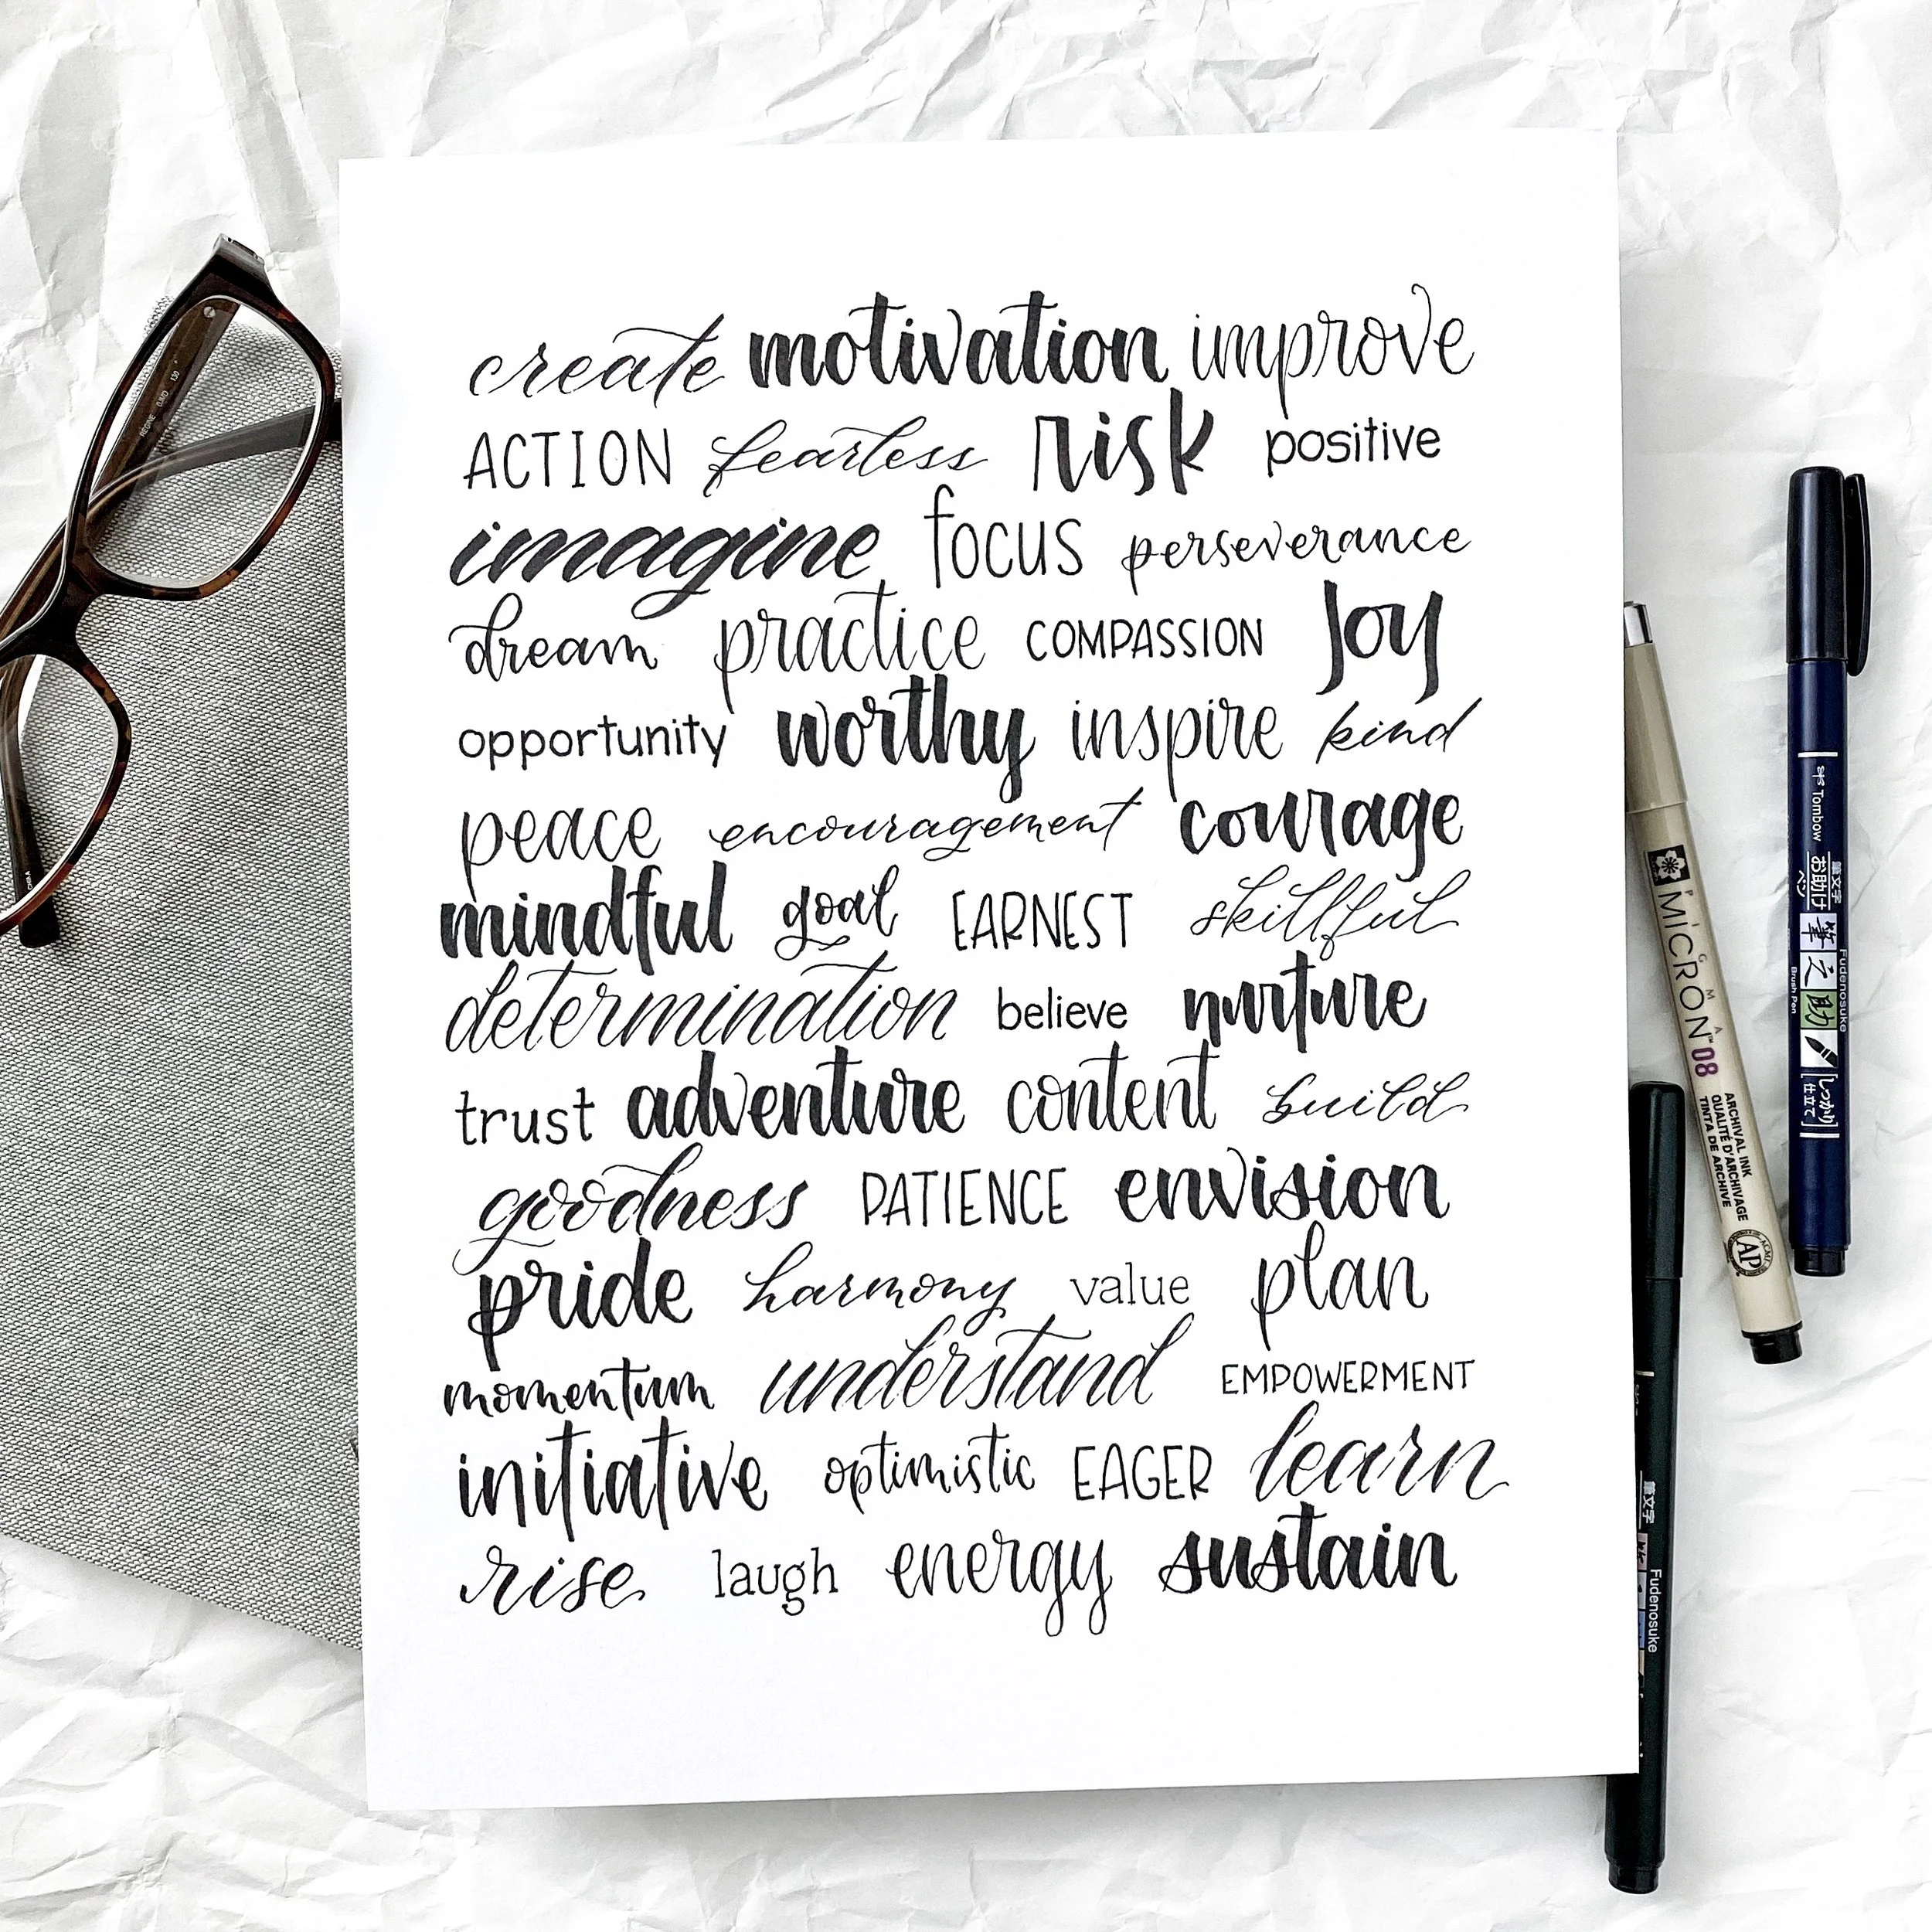 create motivation improve
ACTION fearless risk positive
imagine focus perseverance
dream practice COMPASSION Joy
opportunity worthy inspire kind
peace encouragement courage
mindful goal EARNEST skillful
determination believe nurture
trust adventure content build
goodness PATIENCE envision
pride harmony value plan
momentum understand EMPOWERMENT
initiative optimistic EAGER learn
rise laugh energy sustain
PIGMA
MICRON™ 08
ARCHIVAL INK
QUALITÉ D'ARCHIVAGE
TINTA DE ARCHIVE
AP
Tombow
筆文字
お助け
ペン
筆之助
Fudenosuke
Brush Pen
しっかり
仕立て
筆文字
Fudenosuke